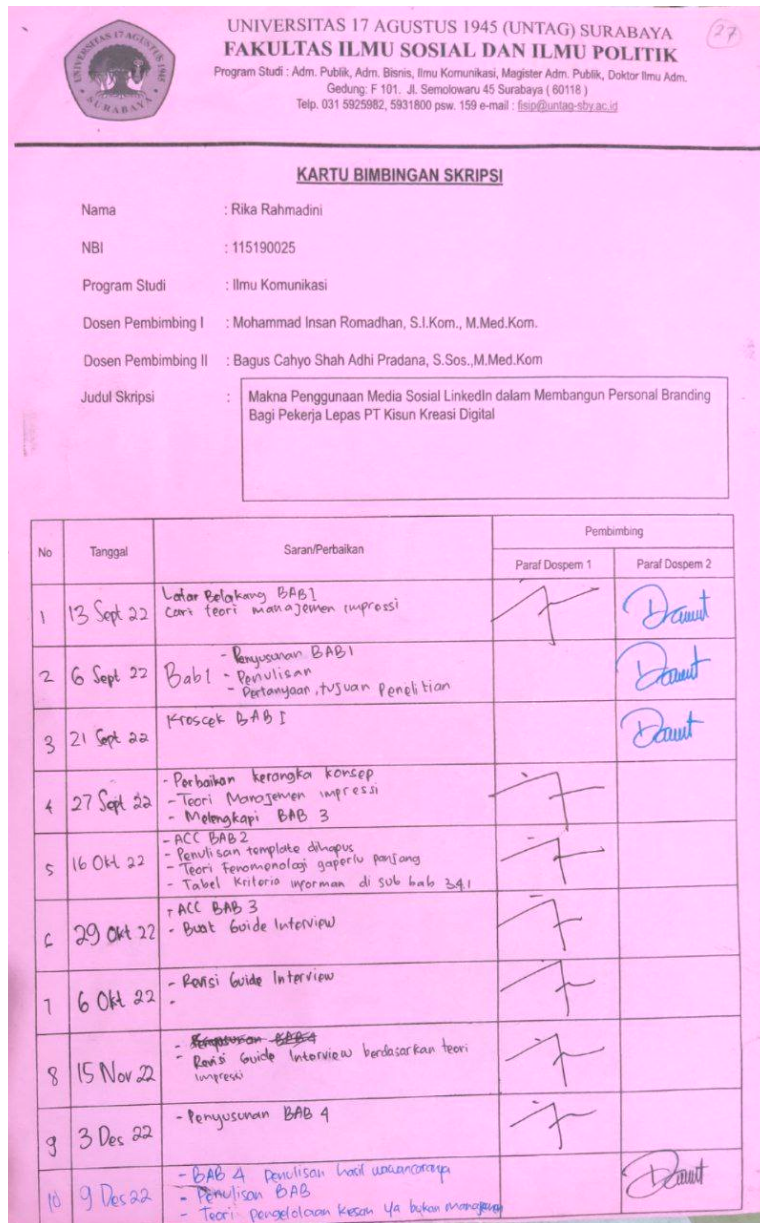 UNIVERSITAS 17 AGUSTUS 1945
SURABAYA
UNIVERSITAS 17 AGUSTUS 1945 (UNTAG) SURABAYA
27
FAKULTAS ILMU SOSIAL DAN ILMU POLITIK
Program Studi : Adm. Publik, Adm. Bisnis, Ilmu Komunikasi, Magister Adm. Publik, Doktor Ilmu Adm.
Gedung: F 101. Jl. Semolowaru 45 Surabaya ( 60118 )
Telp. 031 5925982, 5931800 psw. 159 e-mail : fisip@untag-sby.ac.id
KARTU BIMBINGAN SKRIPSI
Nama : Rika Rahmadini
NBI : 115190025
Program Studi : Ilmu Komunikasi
Dosen Pembimbing I : Mohammad Insan Romadhan, S.I.Kom., M.Med.Kom.
Dosen Pembimbing II : Bagus Cahyo Shah Adhi Pradana, S.Sos.,M.Med.Kom
Judul Skripsi : Makna Penggunaan Media Sosial LinkedIn dalam Membangun Personal Branding
Bagi Pekerja Lepas PT Kisun Kreasi Digital
No Tanggal Saran/Perbaikan Pembimbing
Paraf Dospem 1 Paraf Dospem 2
1 13 Sept 22 Latar Belakang BAB 1
Cari teori manajemen impressi
2 6 Sept 22 Bab 1 - Penyusunan BAB 1
- Penulisan
- Pertanyaan, tujuan Penelitian
3 21 Sept 22 Kroscek BAB I
4 27 Sept 22 - Perbaikan kerangka konsep
- Teori Manajemen impressi
- Melengkapi BAB 3
5 16 Okt 22 - ACC BAB 2
- Penulisan template dihapus
- Teori Fenomenologi gaperlu panjang
- Tabel Kriteria informan di sub bab 3.4.1
6 29 Okt 22 - ACC BAB 3
- Buat Guide Interview
7 6 Okt 22 - Revisi Guide Interview
-
8 15 Nov 22 - Penyusunan BAB 4
- Revisi Guide Interview berdasarkan teori
impressi
9 3 Des 22 - Penyusunan BAB 4
10 9 Des 22 - BAB 4 penulisan hasil wawancaranya
- Penulisan BAB
- Teori pengelolaan kesan ya bukan manajemen